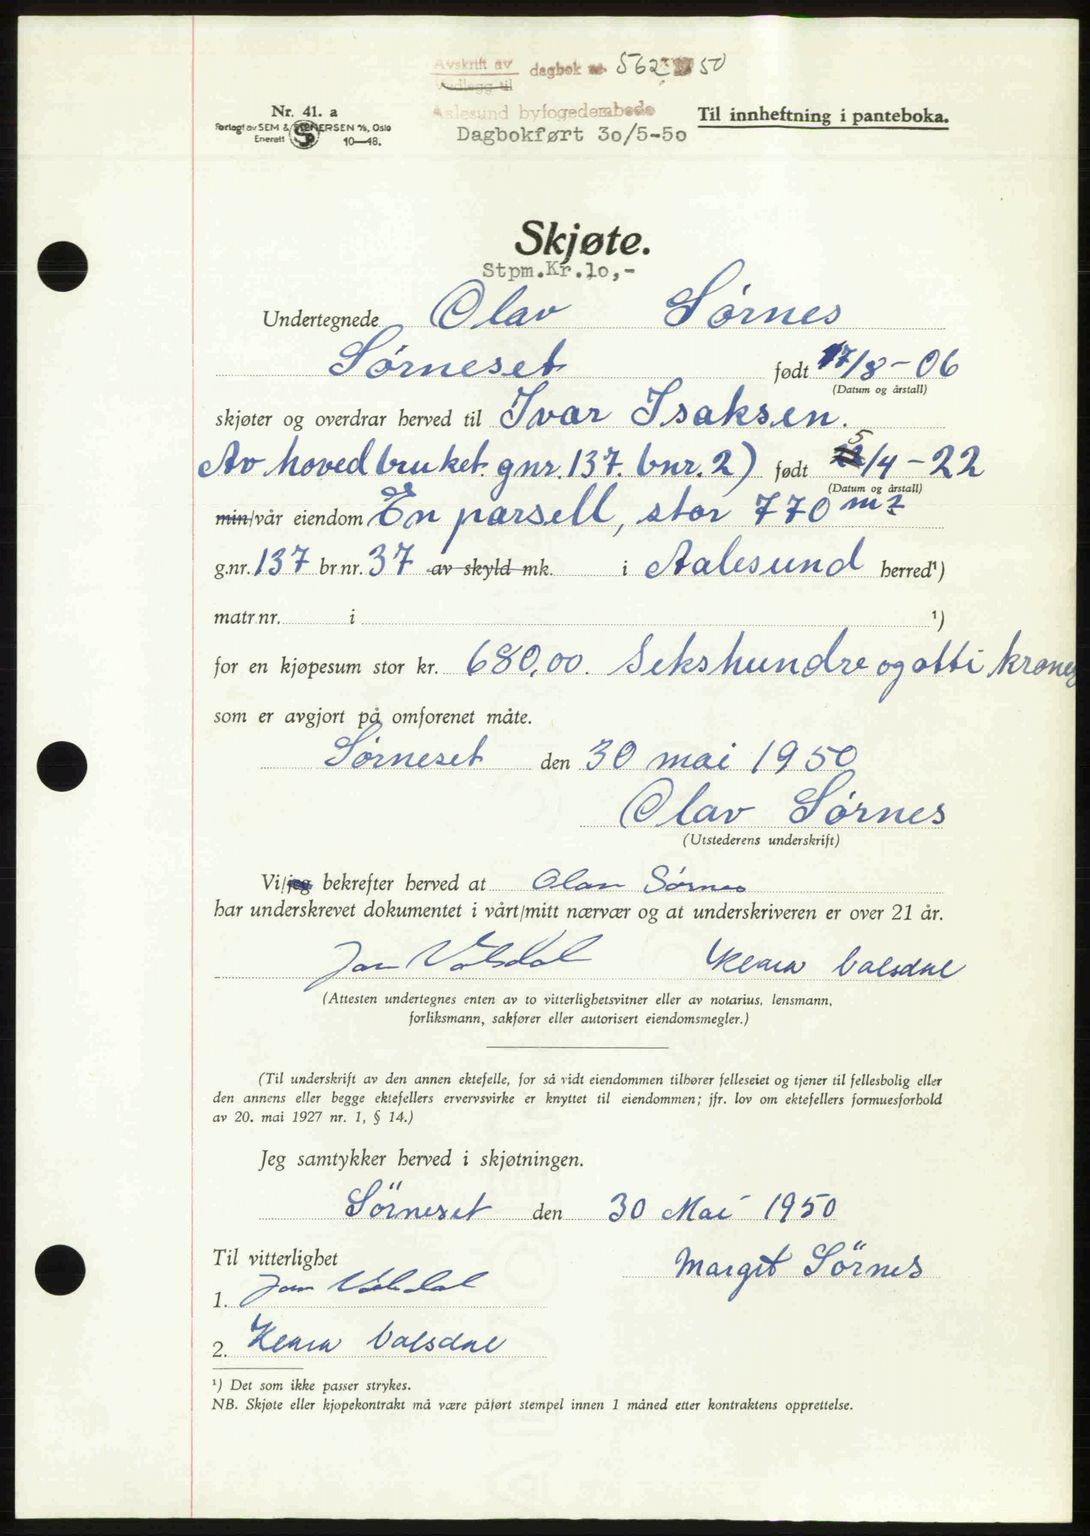 Avskrift av dagbok nr. 562 1950
Vedlegg til
Aalesund byfogedembede
Dagbokført 30/5-50
Nr. 41. a
Forlagt av SEM & STENERSEN A/S, Oslo
Enerett 10—48.
Til innheftning i panteboka.
Skjøte.
Stpm.Kr.10,-
Undertegnede Olav Sørnes
Sørneset født 17/8-06
(Datum og årstall)
skjøter og overdrar herved til Ivar Isaksen.
Av hovedbruket gnr. 137. bnr. 2) født 5/4-22
(Datum og årstall)
min/vår eiendom En parsell, stor 770 m2
g.nr. 137 br.nr. 37 av skyld mk. i Aalesund herred¹)
matr.nr. i ¹)
for en kjøpesum stor kr. 680,00. Sekshundre og otti kroner
som er avgjort på omforenet måte.
Sørneset den 30 mai 1950
Olav Sørnes
(Utstederens underskrift)
Vi/jeg bekrefter herved at Olav Sørnes
har underskrevet dokumentet i vårt/mitt nærvær og at underskriveren er over 21 år.
Jon Valsdal Klara Valsdal
(Attesten undertegnes enten av to vitterlighetsvitner eller av notarius, lensmann,
forliksmann, sakfører eller autorisert eiendomsmegler.)
(Til underskrift av den annen ektefelle, for så vidt eiendommen tilhører felleseiet og tjener til fellesbolig eller
den annens eller begge ektefellers ervervsvirke er knyttet til eiendommen; jfr. lov om ektefellers formuesforhold
av 20. mai 1927 nr. 1, § 14.)
Jeg samtykker herved i skjøtningen.
Sörneset den 30 Mai 1950
Til vitterlighet
Margit Sörnes
1. Jon Valsdal
2. Klara Valsdal
¹) Det som ikke passer strykes.
NB. Skjøte eller kjøpekontrakt må være påført stempel innen 1 måned etter kontraktens opprettelse.